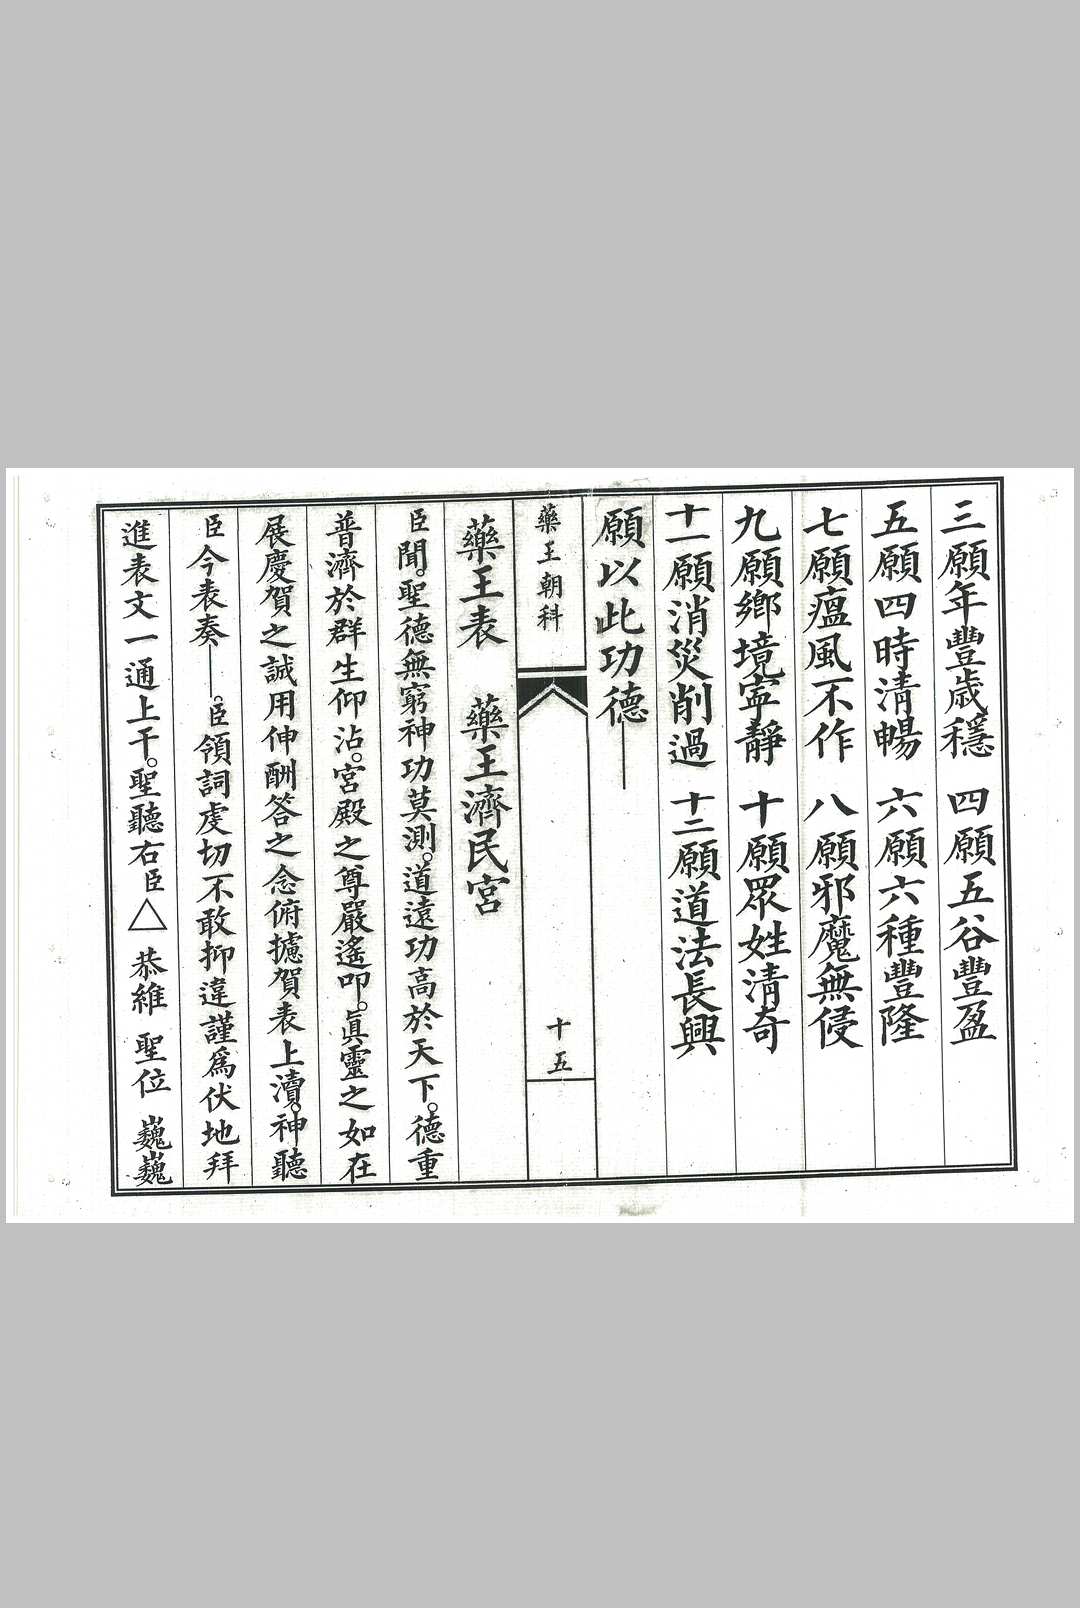 三願年豐歲穩　四願五谷豐盈
五願四時清暢　六願六種豐隆
七願瘟風不作　八願邪魔無侵
九願鄉境寧靜　十願眾姓清奇
十一願消災削過　十二願道法長興
願以此功德——
藥王朝科　十五
藥王表　藥王濟民宮
臣聞。聖德無窮神功莫測。道遠功高於天下。德重
普濟於群生仰沾。宮殿之尊嚴遙叩。眞靈之如在
展慶賀之誠用伸酬答之念俯攄賀表上瀆。神聽
臣今表奏——。臣領詞虔切不敢抑違謹爲伏地拜
進表文一通上干。聖聽右臣△　恭維　聖位　巍巍